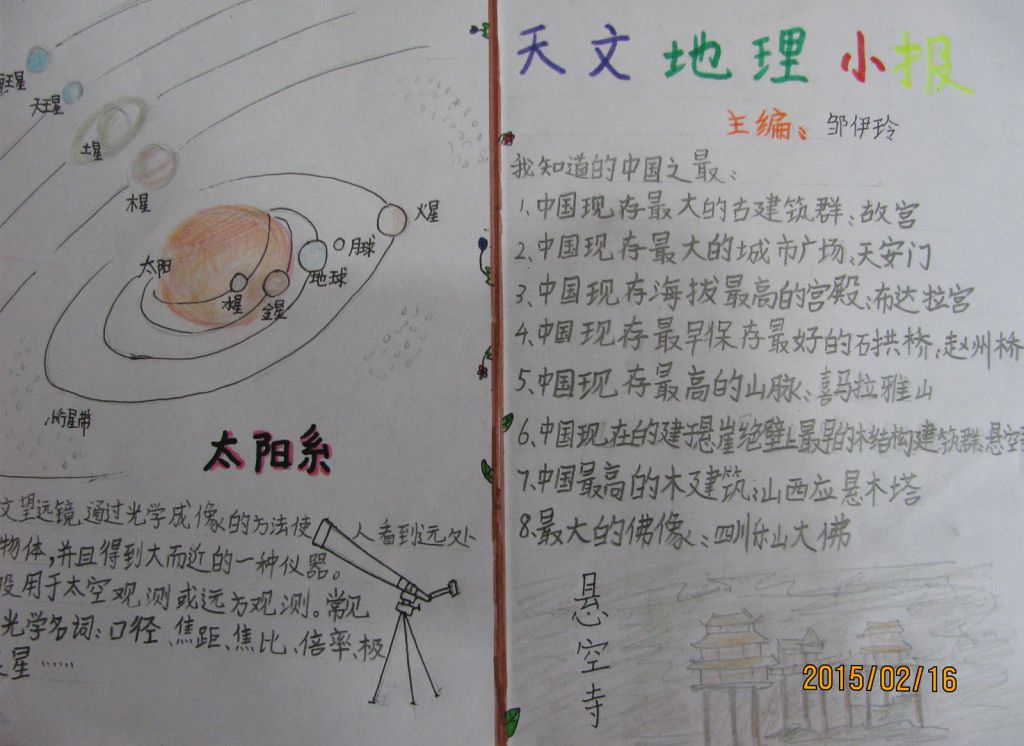 王星
天王星
土星
木星
火星
月球
地球
太阳
水星
金星
小行星带
太阳系
文望远镜,通过光学成像的方法使人看到远处
物体,并且得到大而近的一种仪器。
般用于太空观测或远方观测。常见
光学名词:口径、焦距、焦比、倍率、极
星……
天文地理小报
主编:邹伊玲
我知道的中国之最:
1、中国现存最大的古建筑群:故宫
2、中国现存最大的城市广场:天安门
3、中国现存海拔最高的宫殿:布达拉宫
4、中国现存最早保存最好的石拱桥:赵州桥
5、中国现存最高的山脉:喜马拉雅山
6、中国现在的建于悬崖绝壁上最早的木结构建筑群:悬空
7、中国最高的木建筑:山西应悬木塔
8、最大的佛像:四川乐山大佛
悬空寺
2015/02/16